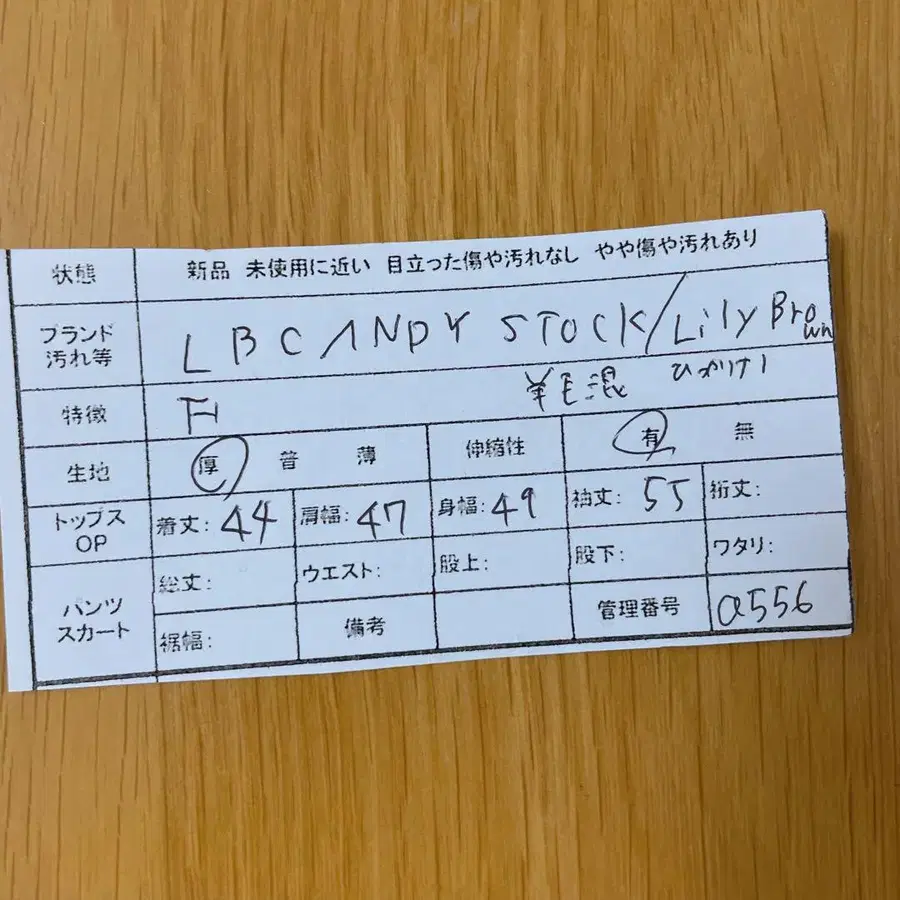 状態 新品 未使用に近い 目立った傷や汚れなし やや傷や汚れあり
ブランド 汚れ等 LBCANDY STOCK/Lily Brown
特徴 羊毛混 ひかりけ
生地 厚 普 薄 伸縮性 有 無
トップス OP 着丈: 44 肩幅: 47 身幅: 49 袖丈: 55 裄丈:
パンツ スカート 総丈: ウエスト: 股上: 股下: ワタリ:
裾幅: 備考 管理番号 a556